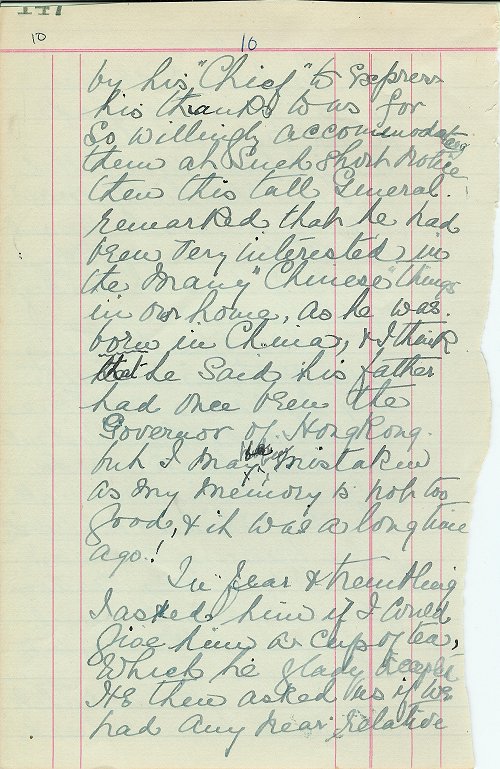 147
10
10
by his "Chief" to Express
his thanks to us for
So willingly accommodating
them at Such Short Notice
then this tall General.
remarked that he had
been very interested in
the Many "Chinese" things
in our home, as he was.
born in China, & I think
that he Said his father
had once been the
Governor of HongKong.
but I May be mistaken
as my Memory is not too
good, & it was a long time
ago!
In fear & trembling
I asked him if I could
give him a cup of tea,
Which he glady accepted
He then asked us if we
had any near relative